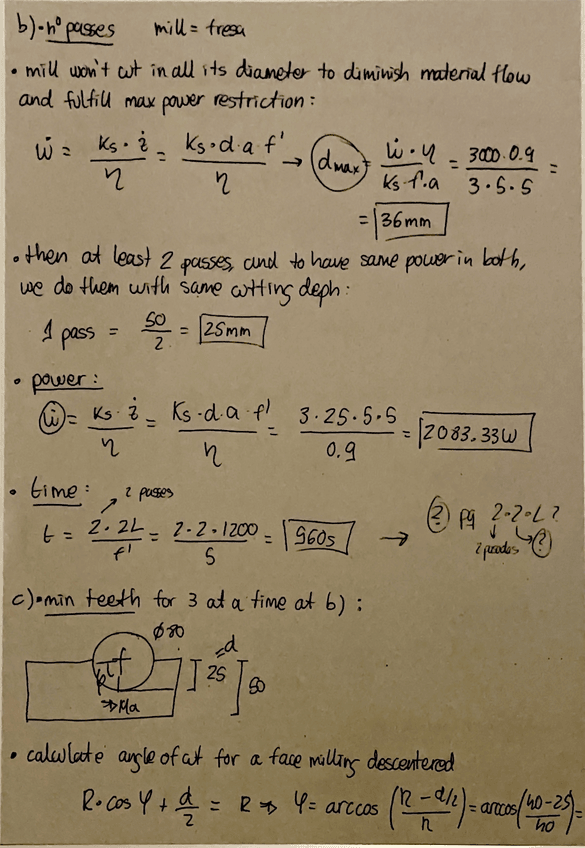 b) • nº passes mill = fresa
• mill won't cut in all its diameter to diminish material flow
and fulfill max power restriction:
ẇ = Ks · ż / η = Ks · d · a f' / η → dmax = ẇ · η / Ks · f' · a = 3000 · 0.9 / 3 · 5 · 5 =
= 36mm
• then at least 2 passes, and to have same power in both,
we do them with same cutting deph:
1 pass = 50 / 2 = 25mm
• power:
ẇ = Ks · ż / η = Ks · d · a · f' / η = 3 · 25 · 5 · 5 / 0.9 = 2083.33W
• time: 2 passes
t = 2 · 2L / f' = 2 · 2 · 1200 / 5 = 960s → ? pq 2 · 2 · L ?
?
c) • min teeth for 3 at a time at b) :
ø80
=d
φ 25 50
⇒ Ma
• calculate angle of cut for a face milling descentered
R · cos φ + d / 2 = R ⇒ φ = arccos ( R - d/2 / R ) = arccos ( 40 - 25 / 40 ) =